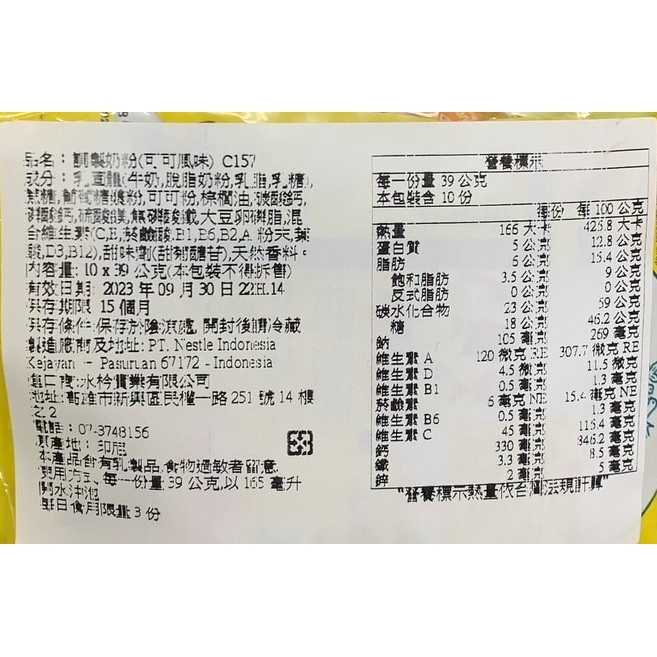 品名：調製奶粉(可可風味) C157
成分：乳直體(牛奶,脫脂奶粉,乳脂,乳糖),
蔗糖,葡萄糖漿粉,可可粉,棕櫚油,碳酸鈣,
磷酸鈣,硫酸鎂,焦磷酸鐵,大豆卵磷脂,混
合維生素(C,E,菸鹼酸,B1,B6,B2,A 粉末,葉
酸,D3,B12),甜味劑(甜菊醣苷),天然香料。
內容量: 10 x 39 公克(本包裝不得拆售)
有效日期: 2023 年 09 月 30 日 22H.14
保存期限: 15 個月
保存條件:保存於陰涼處, 開封後請冷藏
製造廠商及地址: PT. Nestle Indonesia
Kejayan – Pasuruan 67172 - Indonesia
進口商:水衿實業有限公司
地址:高雄市新興區民權一路 251 號 14 樓
之 2
電話：07-3748156
原產地：印尼
本產品含有乳製品,食物過敏者留意.
使用方式: 每一份量 39 公克,以 165 毫升
開水沖泡
每日食用限量 3 份
營養標示
每一份量 39 公克
本包裝含 10 份
每份 每 100 公克
熱量 166 大卡 425.8 大卡
蛋白質 5 公克 12.8 公克
脂肪 6 公克 15.4 公克
飽和脂肪 3.5 公克 9 公克
反式脂肪 0 公克 0 公克
碳水化合物 23 公克 59 公克
糖 18 公克 46.2 公克
鈉 105 毫克 269 毫克
維生素 A 120 微克 RE 307.7 微克 RE
維生素 D 4.5 微克 11.5 微克
維生素 B1 0.5 毫克 1.3 毫克
菸鹼素 6 毫克 NE 15.4 毫克 NE
維生素 B6 0.5 毫克 1.3 毫克
維生素 C 45 毫克 115.4 毫克
鈣 330 毫克 846.2 毫克
鐵 3.3 毫克 8.5 毫克
鋅 2 毫克 5 毫克
"營養標示熱量依台灣法規計算"